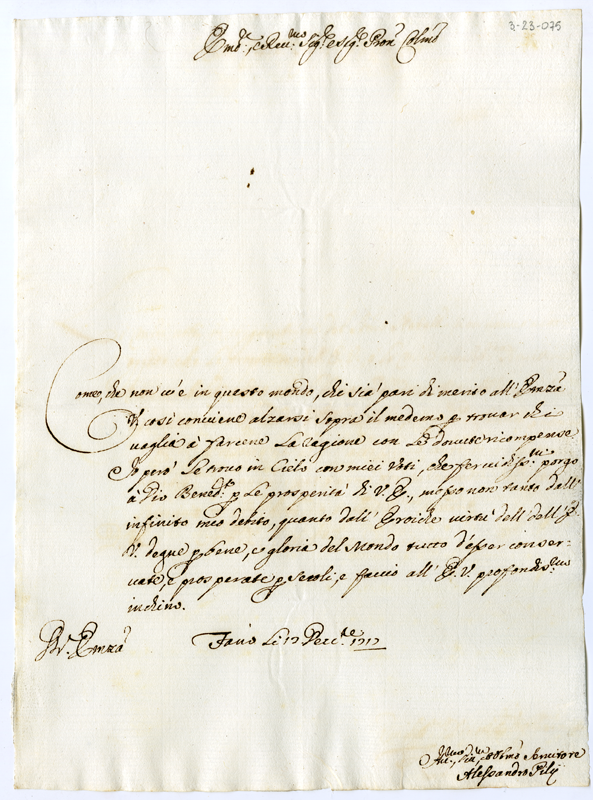 3-23-075
Em.o, e Reu.mo Sig.r e Sig.r Pron Colmo
Come, che non ui è in questo mondo, chi sia pari di merito all'Emza
V. cosi conuiene alzarsi sopra il medemo p trouar chi
uaglia à farcene la ragione con le douute ricompense
Io però le trouo in Cielo con miei Voti, che feruidiss.mi porgo
à Dio Bened.o p le prosperità di V. E., mosso non tanto dall'
infinito mio debito, quanto dall'Eroiche uirtù dell' E.
V. degne p bene, e gloria del Mondo tutto d'esser conser-
uate, e prosperate p secoli, e faccio all'E. V. profondiss.mo
inchino.
Emza
Fano Li 17 1717
Hu.mo Seruitore
Alessandro